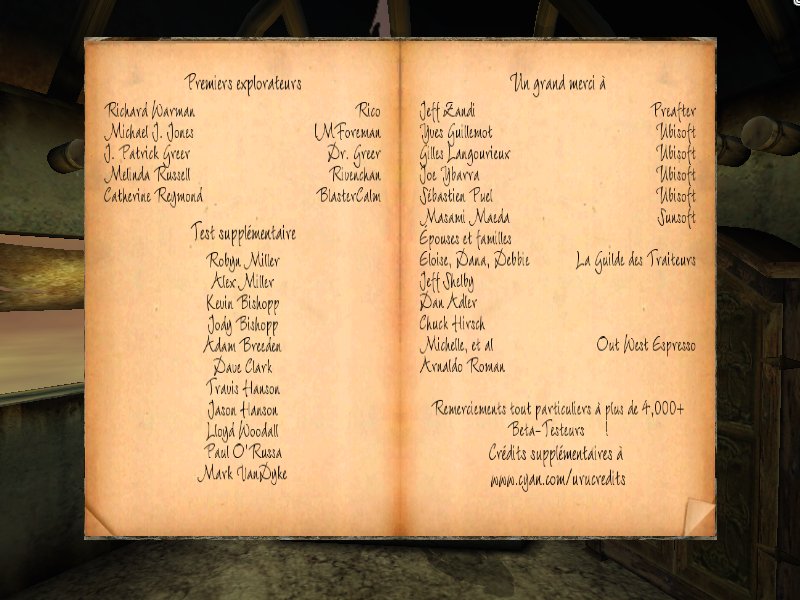 Premiers explorateurs
Richard Warman Rico
Michael J. Jones UMForeman
J. Patrick Greer Dr. Greer
Melinda Russell Rivenchan
Catherine Reymond BlasterCalm
Test supplémentaire
Robyn Miller
Alex Miller
Kevin Bishopp
Jody Bishopp
Adam Breeden
Dave Clark
Travis Hanson
Jason Hanson
Lloyd Woodall
Paul O'Russa
Mark VanDyke
Un grand merci à
Jeff Zandi Preafter
Yves Guillemot Ubisoft
Gilles Langourieux Ubisoft
Joe Ybarra Ubisoft
Sébastien Puel Ubisoft
Masami Maeda Sunsoft
Épouses et familles
Eloise, Dana, Debbie La Guilde des Traiteurs
Jeff Shelby
Dan Adler
Chuck Hirsch
Michelle, et al Out West Espresso
Arnaldo Roman
Remerciements tout particuliers à plus de 4,000+
Beta-Testeurs !
Crédits supplémentaires à
www.cyan.com/urucredits